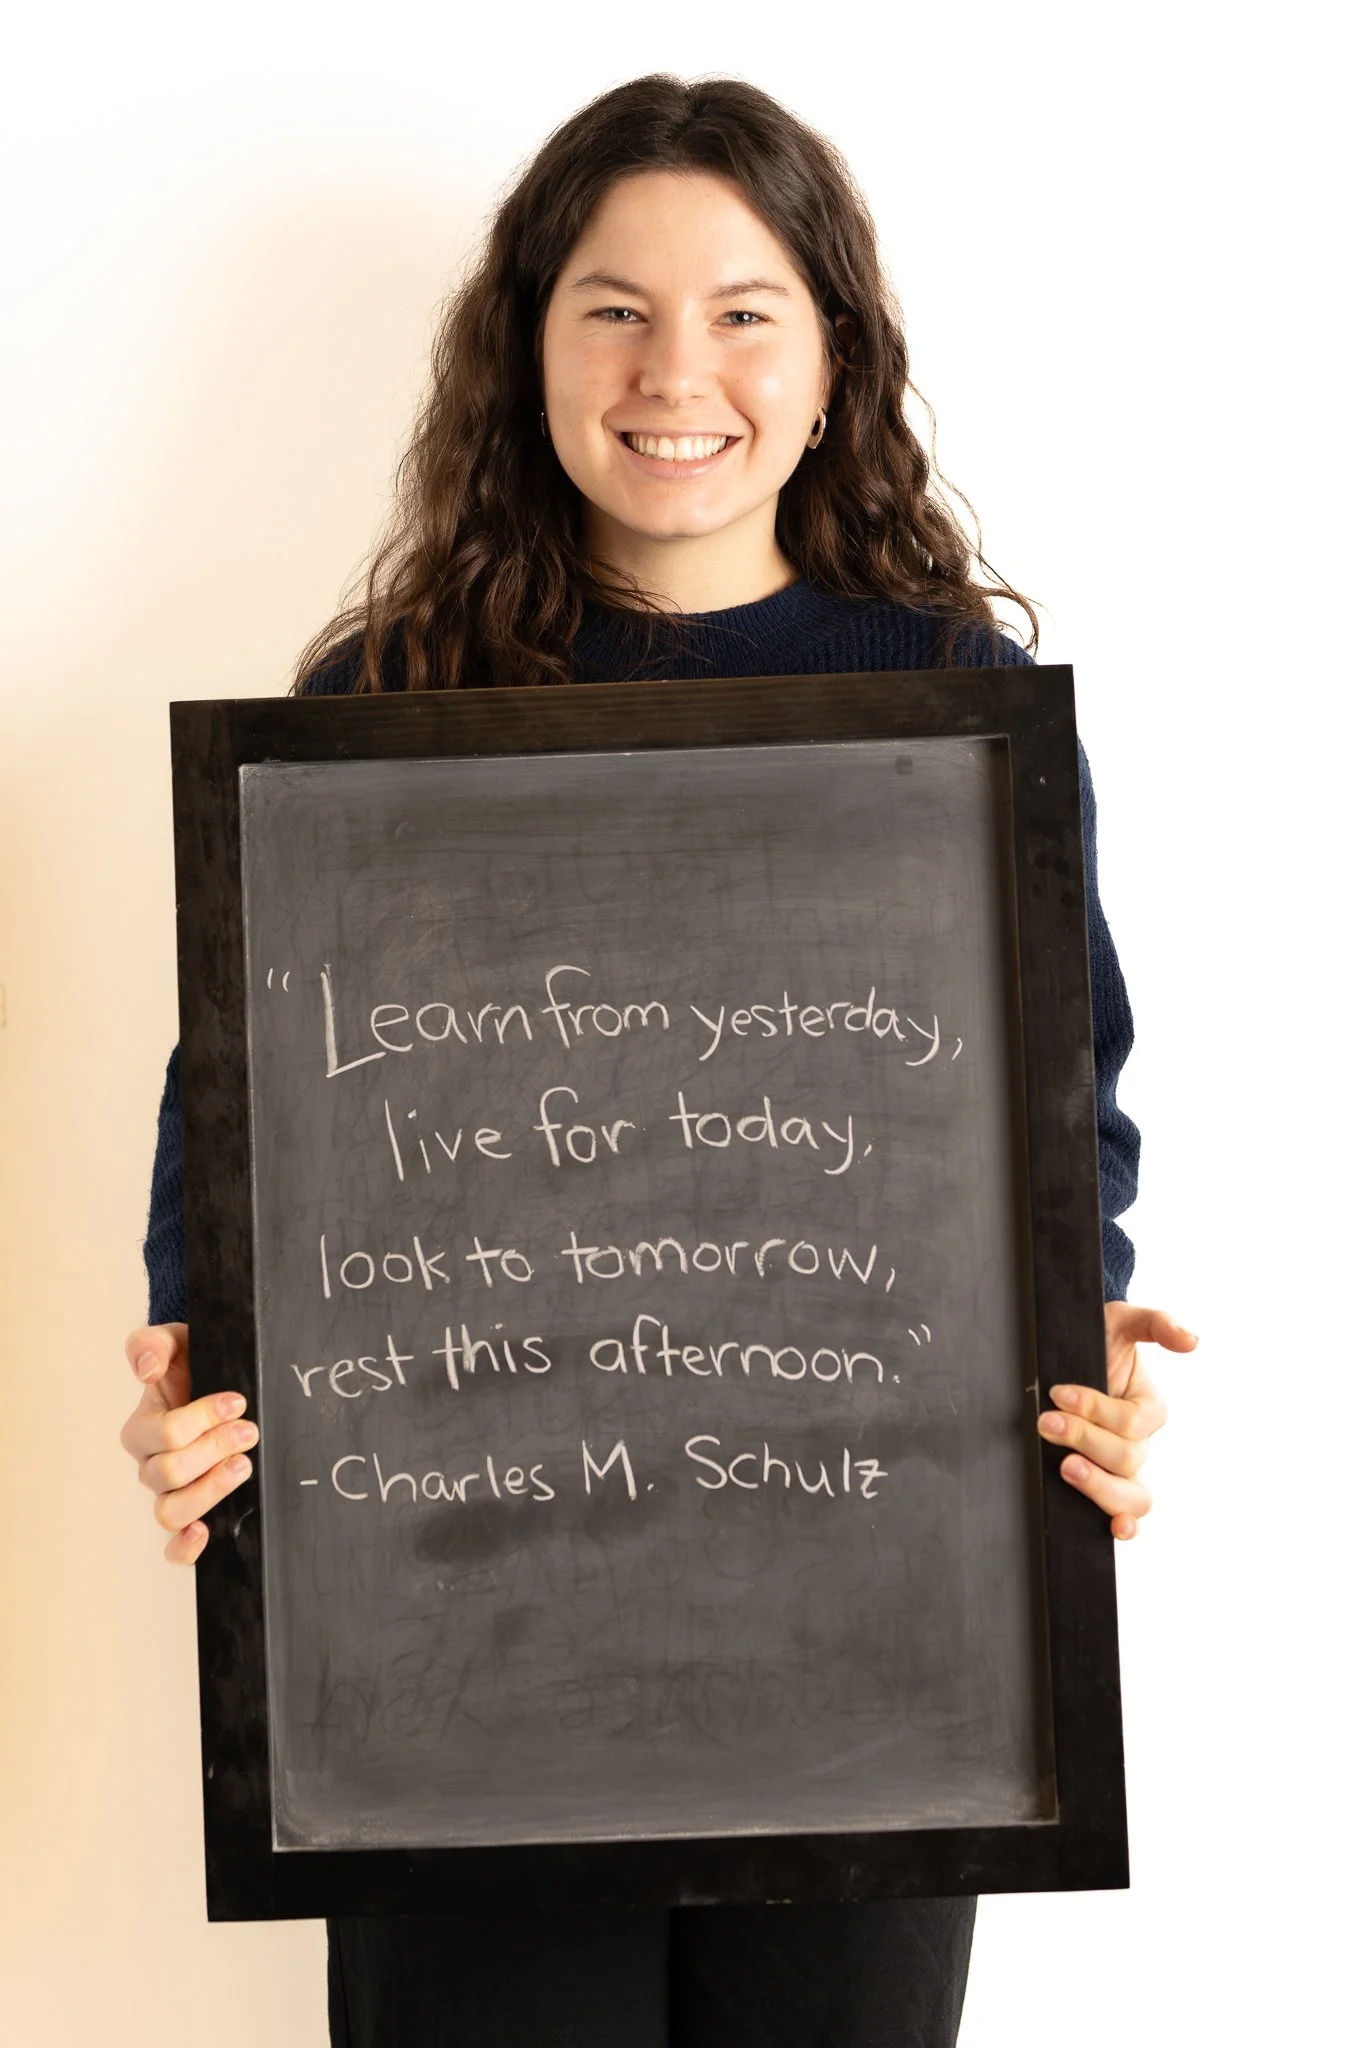 “Learn from yesterday,
live for today,
look to tomorrow,
rest this afternoon.”
-Charles M. Schulz